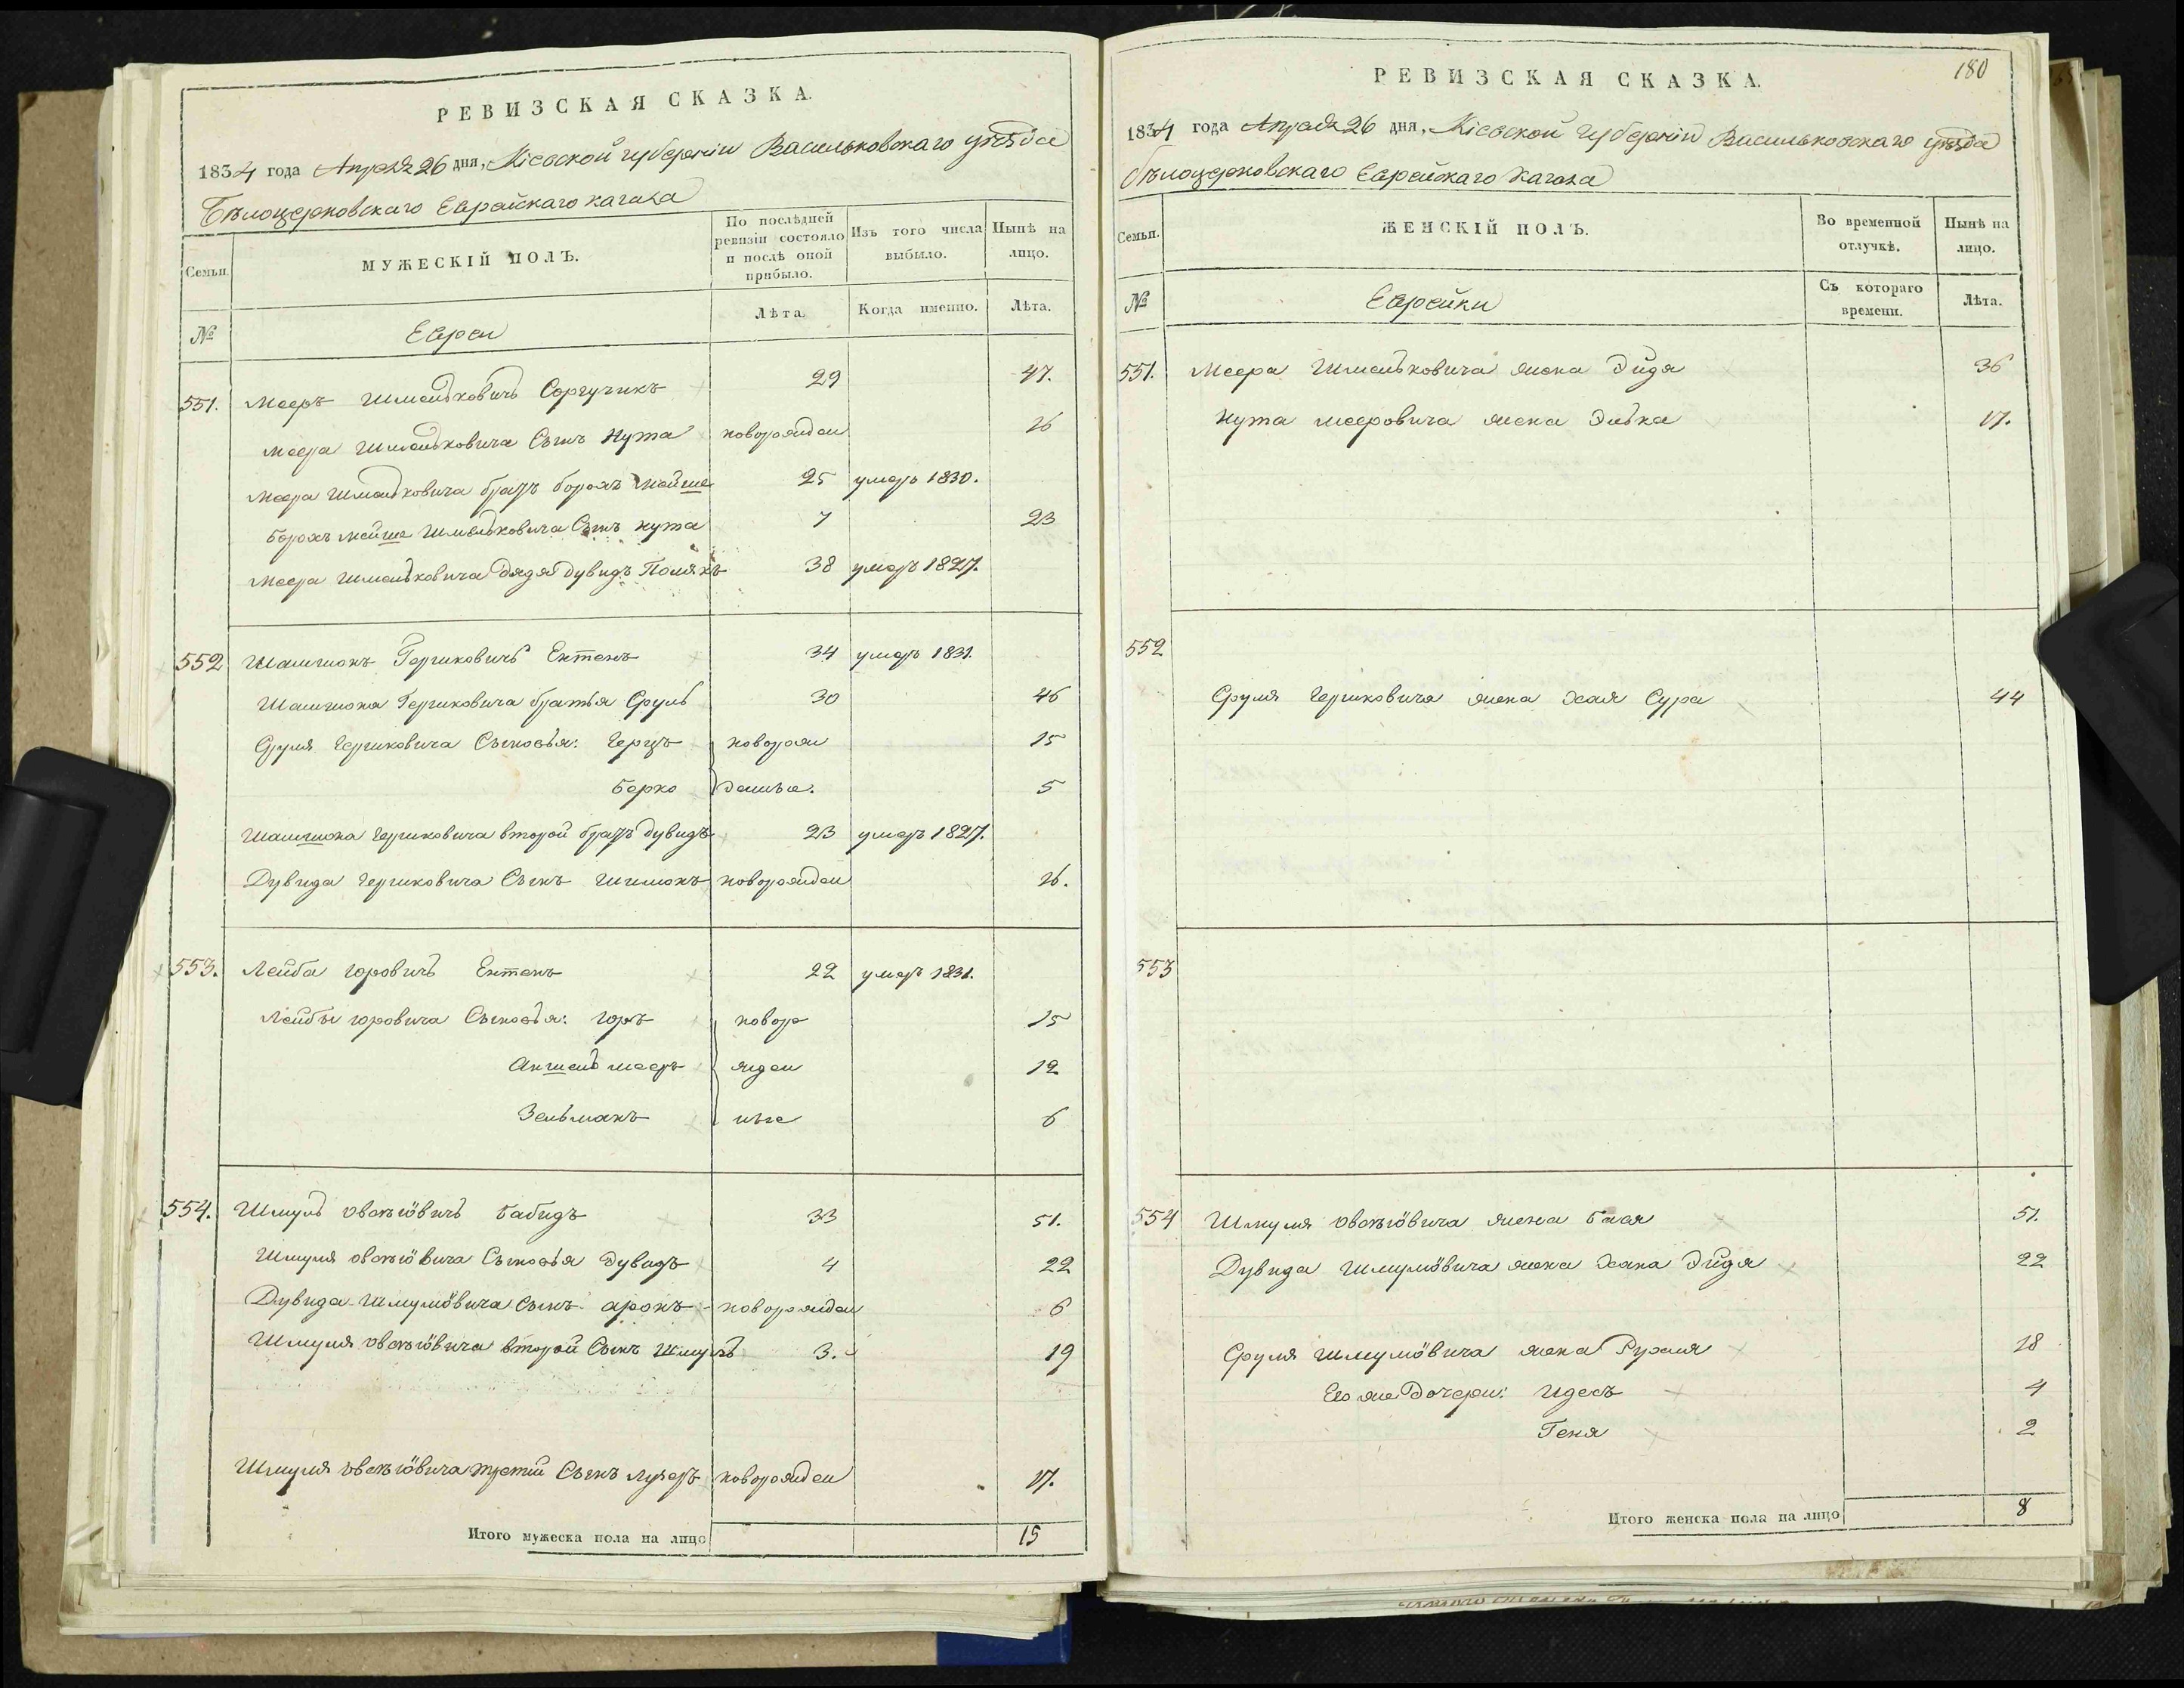 РЕВИЗСКАЯ СКАЗКА.
1834 года Апреля 26 дня, Кіевской губерніи Васильковскаго уѣзда
Бѣлоцерковскаго Еврейскаго кагала
Семьи.
МУЖЕСКІЙ ПОЛЪ.
По послѣдней ревизіи состояло и послѣ оной прибыло.
Изъ того числа выбыло.
Нынѣ на лицо.
№
Евреи
Лѣта.
Когда именно.
Лѣта.
551. Мееръ Шмельковичъ Соргучикъ 29 47.
Меера Шмельковича Сынъ Нута новорожден 16
Меера Шмельковича братъ борохъ Мойше 25 умеръ 1830.
Борохъ Мойше Шмельковича Сынъ нута 7 23
Меера Шмельковича дядя Дувидъ Полякъ 38 умеръ 1827.
552 Шамшонъ Гершковичъ Ентенъ 34 умеръ 1831.
Шамшона Гершковича братья Сруль 30 46
Сруля Гершковича Сыновья: Герцъ новорож 15
Берко денные. 5
Шамшона Гершковича второй братъ дувидъ 23 умеръ 1827.
Дувида Гершковича Сынъ Шимонъ новорожден 16.
553. Лейба горовичъ Ентенъ 22 умеръ 1831.
Лейбы горовича Сыновья: горъ новоро 15
Аншель мееръ жден 12
Зельманъ ные 6
554. Шмуль овсѣіовичъ Бабидъ 33 51.
Шмуля овсѣіовича Сыновья Дувидъ 4 22
Дувида Шмулёвича Сынъ аронъ новорожден 6
Шмуля овсѣіовича второй Сынъ 3. 19
Шмуля овсѣіовича третій Сынъ лузеръ новорожден 17.
Итого мужеска пола на лицо 15
180
РЕВИЗСКАЯ СКАЗКА.
1834 года Апреля 26 дня, Кіевской губерніи Васильковскаго уѣзда
бѣлоцерковскаго Еврейскаго кагала
Семьи.
ЖЕНСКІЙ ПОЛЪ.
Во временной отлучкѣ.
Нынѣ на лицо.
№
Еврейки
Съ котораго времени.
Лѣта.
551. Меера Шмельковича жена Эйдя 36
Нута мееровича жена Элька 17.
552
Сруля Гершковича жена Хая Сура 44
553
554 Шмуля овсѣіовича жена Бася 51.
Дувида Шмулёвича жена Хана Эйдя 22
Сруля Шмулёвича жена Рухля 18
Его же Дочери: Идесъ 4
Геня 2
Итого женска пола на лицо 8